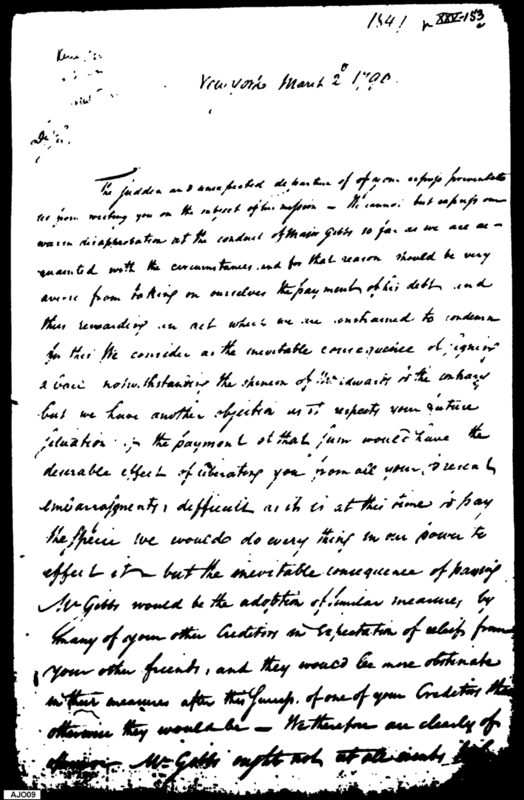 1841
XXV-153
New York March 2d 1790.
The sudden and unexpected departure of of your express prevented
us from writing you on the subject of his mission — We cannot but express our
warm disapprobation at the conduct of Major Gibbs so far as we are ac-
quainted with the circumstances and for that reason should be very
averse from taking on ourselves the payment of his debt and
thus rewarding an act which we are constrained to condemn
for this We consider as the inevitable consequence of signing
a bail notwithstanding the opinion of Mr Edwards to the contrary
but we have another objection as it respects your future
situation if the payment of that sum would have the
desirable effect of liberating you from all your present
embarrassments, difficult as it is at this time to pay
the Specie we would do every thing in our power to
effect it — but the inevitable consequence of paying
Mr Gibbs would be the adoption of similar measures by
many of your other Creditors in expectation of relief from
your other friends, and they would be more obstinate
in their measures after the success of one of your Creditors than
otherwise they would be — We therefore are clearly of
opinion Mr Gibbs ought not at all events
AJO09